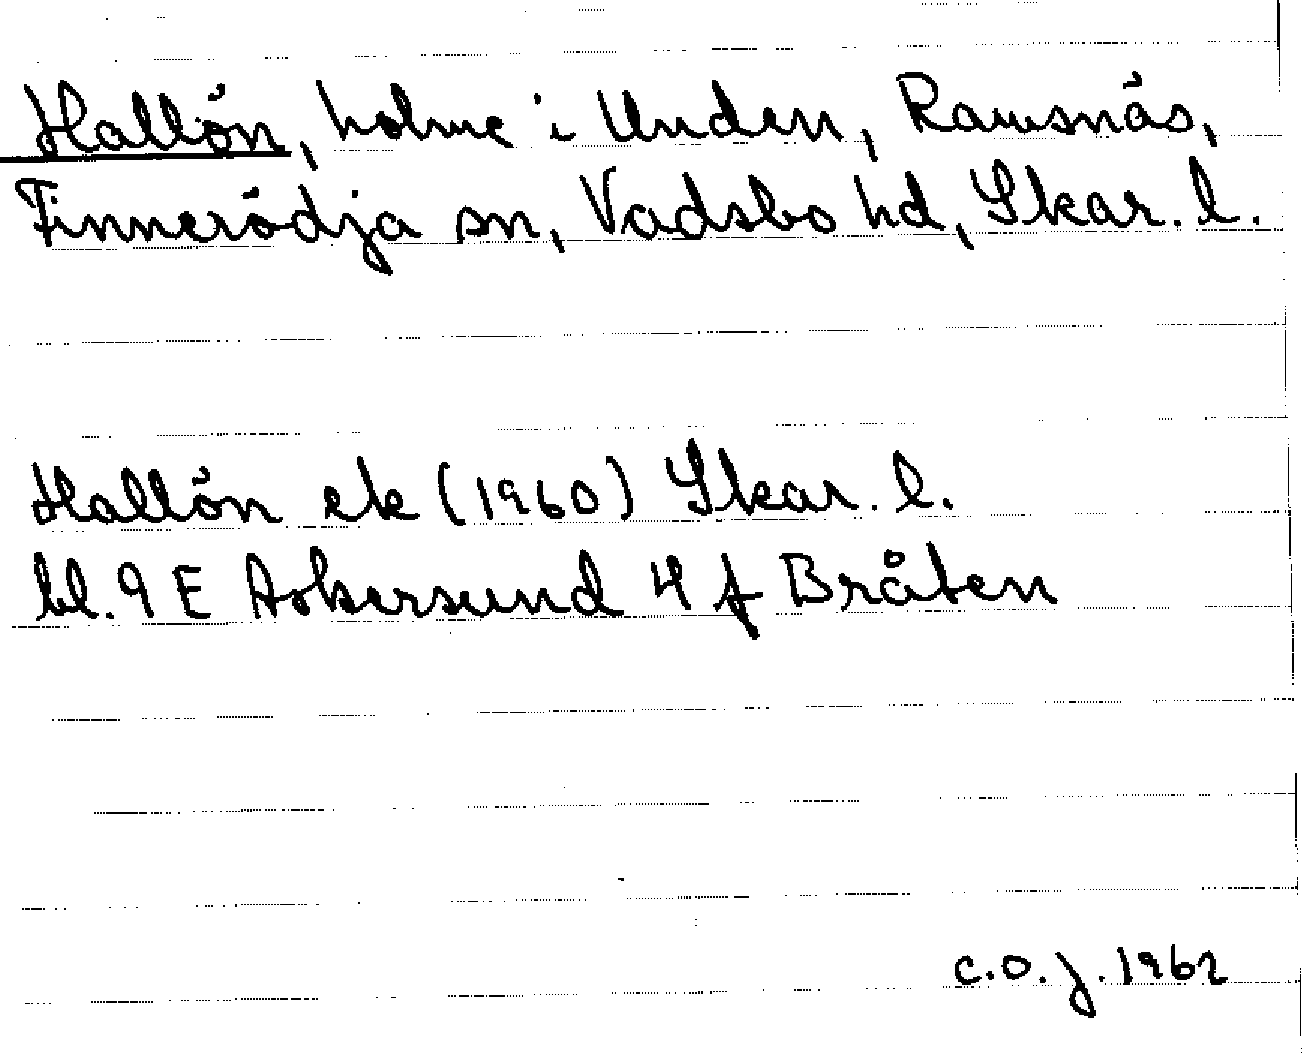 Hallön, holme i Unden, Ramsnäs,
Finnerödja sn, Vadsbo hd, Skar. l.
Hallön ek (1960) Skar. l.
bl. 9 E Askersund 4 f Bråten
C.O.J. 1962